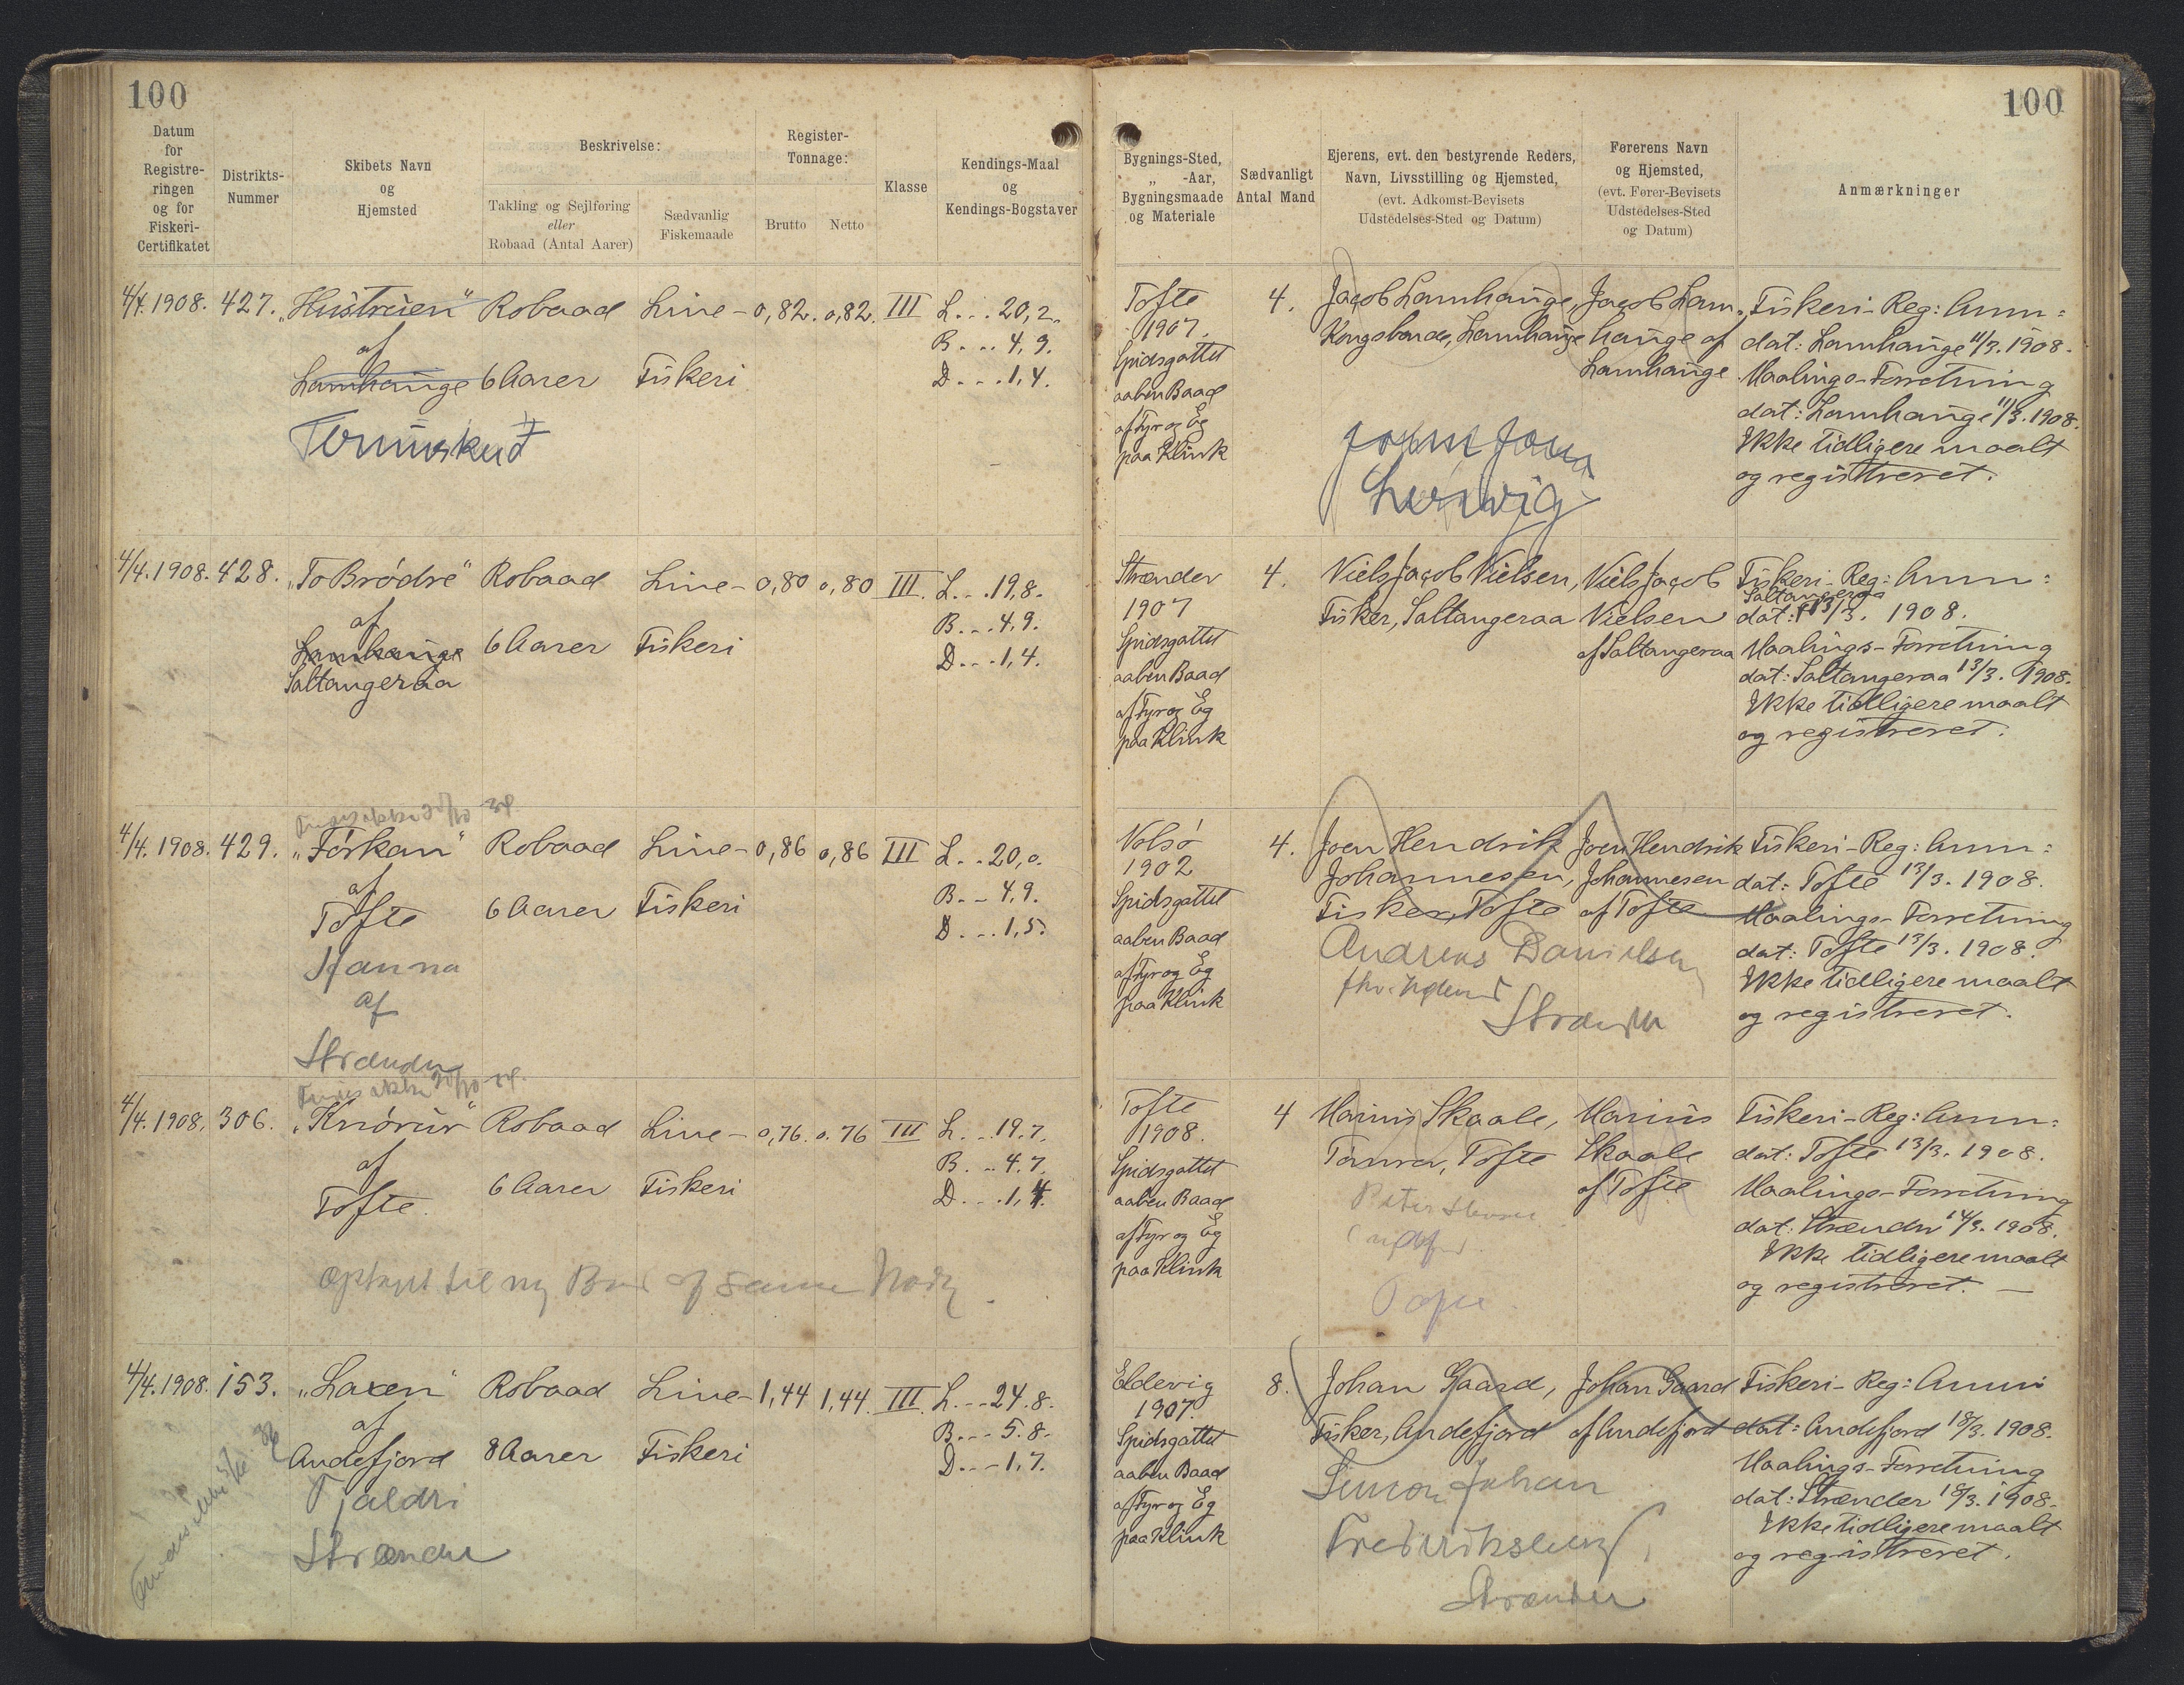 100
100
Datum
for
Registre-
ringen
og for
Fiskeri-
Certifikatet
Distrikts-
Nummer
Skibets Navn
og
Hjemsted
Beskrivelse:
Takling og Sejlføring
eller
Robaad (Antal Aarer)
Sædvanlig
Fiskemaade
Register-
Tonnage:
Brutto Netto
Klasse
Kendings-Maal
og
Kendings-Bogstaver
Bygnings-Sted,
„ -Aar,
Bygningsmaade
og Materiale
Sædvanligt
Antal Mand
Ejerens, evt. den bestyrende Reders,
Navn, Livsstilling og Hjemsted,
(evt. Adkomst-Bevisets
Udstedelses-Sted og Datum)
Førerens Navn
og Hjemsted,
(evt. Fører-Bevisets
Udstedelses-Sted
og Datum)
Anmærkninger
4/4. 1908. 427. „Hustruen" Robaad Line- 0,82. 0,82. III L... 20,2.
af
Lamhauge 6 Aarer Fiskeri
B.... 4,9.
D....1,4.
Tofte
1907.
Spidsgattet
aaben Baad
af Fyr og Eg
paa Klink
4.
Jacob Lamhauge,
Kongsbonde, Lamhauge
Jacob Lam-
hauge af
Lamhauge
Fiskeri-Reg: Anm:
dat: Lamhauge 11/3. 1908.
Maalings-Forretning
dat: Lamhauge 11/3. 1908.
Ikke tidligere maalt
og registreret.
4/4. 1908. 428. „To Brødre" Robaad Line- 0,80 0,80 III. L...19,8.
af
Lamhauge 6 Aarer Fiskeri
Saltangeraa
B....4,9.
D....1,4.
Strænder
1907
Spidsgattet
aaben Baad
af Fyr og Eg
paa Klink
4.
Niels Jacob Nielsen,
Fisker, Saltangeraa
Niels Jacob
Nielsen
af Saltangeraa
Fiskeri-Reg: Anm:
Saltangeraa
dat: 13/3. 1908.
Maalings-Forretning
dat: Saltangeraa 13/3. 1908.
Ikke tidligere maalt
og registreret.
4/4. 1908. 429. „Fórkan" Robaad Line- 0,86 0,86 III L..20,0.
af
Tofte 6 Aarer Fiskeri
B...4,9.
D....1,5.
Hanna
af
Strænder
Nolsø
1902
Spidsgattet
aaben Baad
af Fyr og Eg
paa Klink
4.
Joen Hendrik
Johannesen,
Fisker, Tofte
Andreas Danielsen
Strænder
Joen Hendrik
Johannesen
af Tofte
Fiskeri-Reg: Anm:
dat: Tofte 13/3. 1908.
Maalings-Forretning
dat: Tofte 13/3. 1908.
Ikke tidligere maalt
og registreret.
4/4. 1908. 306. „Knórur" Robaad Line- 0,76. 0.76 III L...19.7.
af
Tofte. 6 Aarer Fiskeri
B....4.7.
D....1,4.
til ny Baad af samme Navn
Tofte
1908.
Spidsgattet
aaben Baad
af Fyr og Eg
paa Klink
4
Marius Skaale,
Tømrer, Tofte
Peter
Marius
Skaale
af Tofte
Fiskeri-Reg: Anm:
dat: Tofte 13/3. 1908.
Maalings-Forretning
dat: Strænder 14/3. 1908.
Ikke tidligere maalt
og registreret.
4/4. 1908. 153. „Laxen" Robaad Line- 1,44 1,44. III. L...24.8.
af
Andefjord 8 Aarer Fiskeri
B....5.8.
D...1.7.
Tjaldri
Strænder
Eldevig
1907.
Spidsgattet
aaben Baad
af Fyr og Eg
paa Klink
8.
Johan Gaard,
Fisker, Andefjord
Simon Johan
Frederiksen
Strænder
Johan Gaard
af Andefjord
Fiskeri-Reg: Anm:
dat: Andefjord 18/3. 1908.
Maalings-Forretning
dat: Strænder 18/3. 1908.
Ikke tidligere maalt
og registreret.